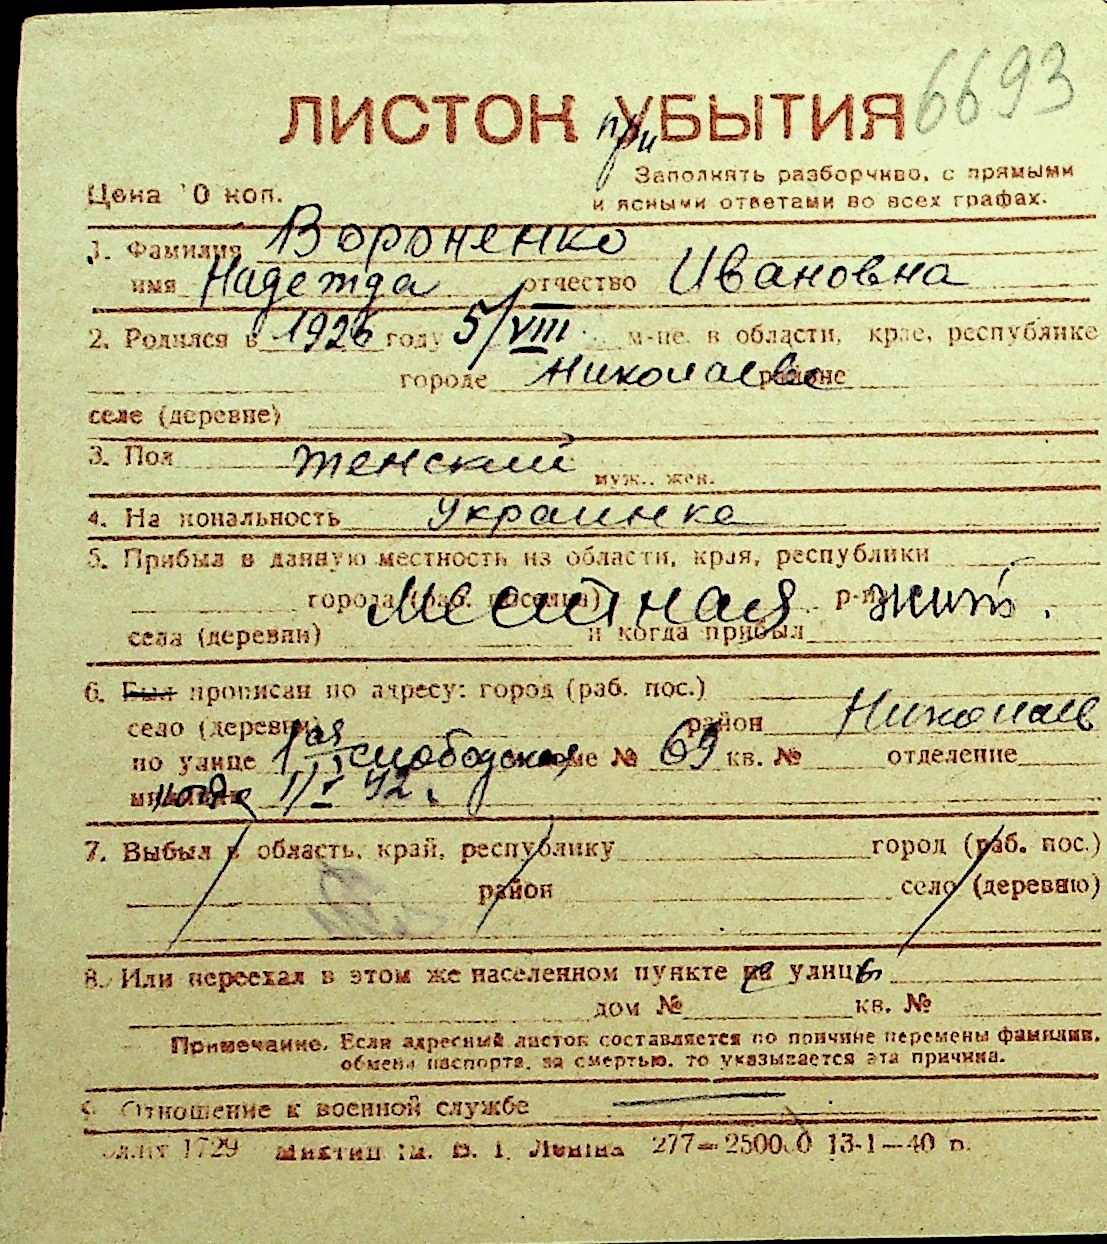 6693
ЛИСТОК при УБЫТИЯ
Заполнять разборчиво, с прямыми
и ясными ответами во всех графах.
Цена 10 коп.
1. Фамилия Вороненко
имя Надежда отчество Ивановна
2. Родился в 1926 году 5/VIII м-це, в области, крае, республике
городе Николаеве районе
селе (деревне)
3. Пол женский
муж., жен.
4. Национальность Украинка
5. Прибыл в данную местность из области, края, республики
города (раб. поселка) Местная р-на жит.
села (деревни) и когда прибыл
6. Был прописан по адресу: город (раб. пос.)
село (деревни) район Николаев
по улице 1ая слободская доме № 69 кв. № отделение
милиции 1/I 42.
7. Выбыл в область, край, республику город (раб. пос.)
район село (деревню)
8. Или переехал в этом же населенном пункте с улицы
дом № кв. №
Примечание. Если адресный листок составляется по причине перемены фамилии,
обмена паспорта, за смертью, то указывается эта причина.
9. Отношение к военной службе
1729 им. В. И. Ленина 277—250000 13-1—40 г.